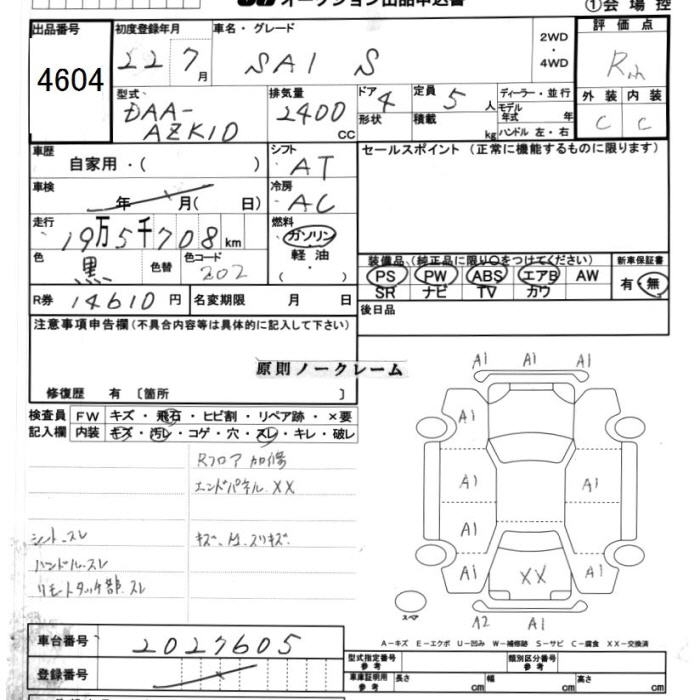 オークション出品申込書
①会場控
出品番号
4604
初度登録年月
22 7月
車名・グレード
SAI S
2WD・4WD
評価点
R
型式
DAA-AZK10
排気量
2400 CC
ドア 4
形状
定員 5 人
積載 kg
ディーラー・並行
モデル年式 年
ハンドル 左・右
外装 内装
C C
車歴
自家用・( )
シフト
AT
セールスポイント(正常に機能するものに限ります)
車検
年 月( 日)
冷房
AC
走行
19万5千708km
燃料
ガソリン
軽油
( ・ )
色
黒 色替
色コード
202
装備品(純正品に限り○をつけてください)
PS PW ABS エアB AW
SR ナビ TV カワ
新車保証書
有・無
R券 14610円
名変期限 月 日
後日品
注意事項申告欄(不具合内容等は具体的に記入して下さい)
原則ノークレーム
修復歴 有〔箇所 〕
検査員記入欄
FW キズ・飛石・ヒビ割・リペア跡・×要
内装 キズ・汚レ・コゲ・穴・スレ・キレ・破レ
Rフロア 加修
エンドパネル XX
シート スレ
キズ、凹、スリキズ
ハンドル スレ
リモートタッチ部 スレ
A1 A1 A1
A1
A1 A1
A1 A1
A1 XX A1
A2 A1
スペア
A-キズ E-エクボ U-凹み W-補修跡 S-サビ C-腐食 XX-交換済
車台番号
2027605
登録番号
型式指定番号 参考
類別区分番号 参考
車庫証明用 参考
長さ cm 幅 cm 高さ cm